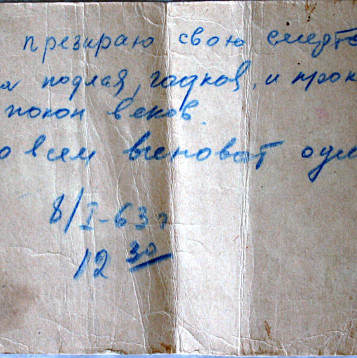 презираю свою смерть
подлая, гадкая, и прок
покон веков.
во всем виноват оди
8/I-63г
12 30